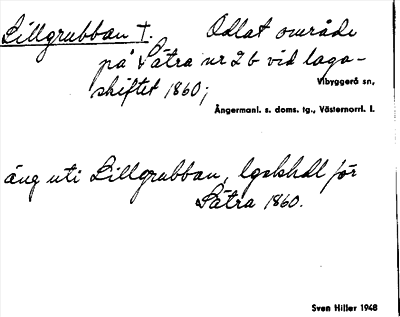 Lillgrubban I. Odlat område
på Sätra nr 2 b vid laga-
skiftet 1860;
Vibyggerå sn,
Ångermanl. s. doms. tg., Västernorrl. l.
äng uti Lillgrubban, lgskhdl för
Sätra 1860.
Sven Hiller 1948